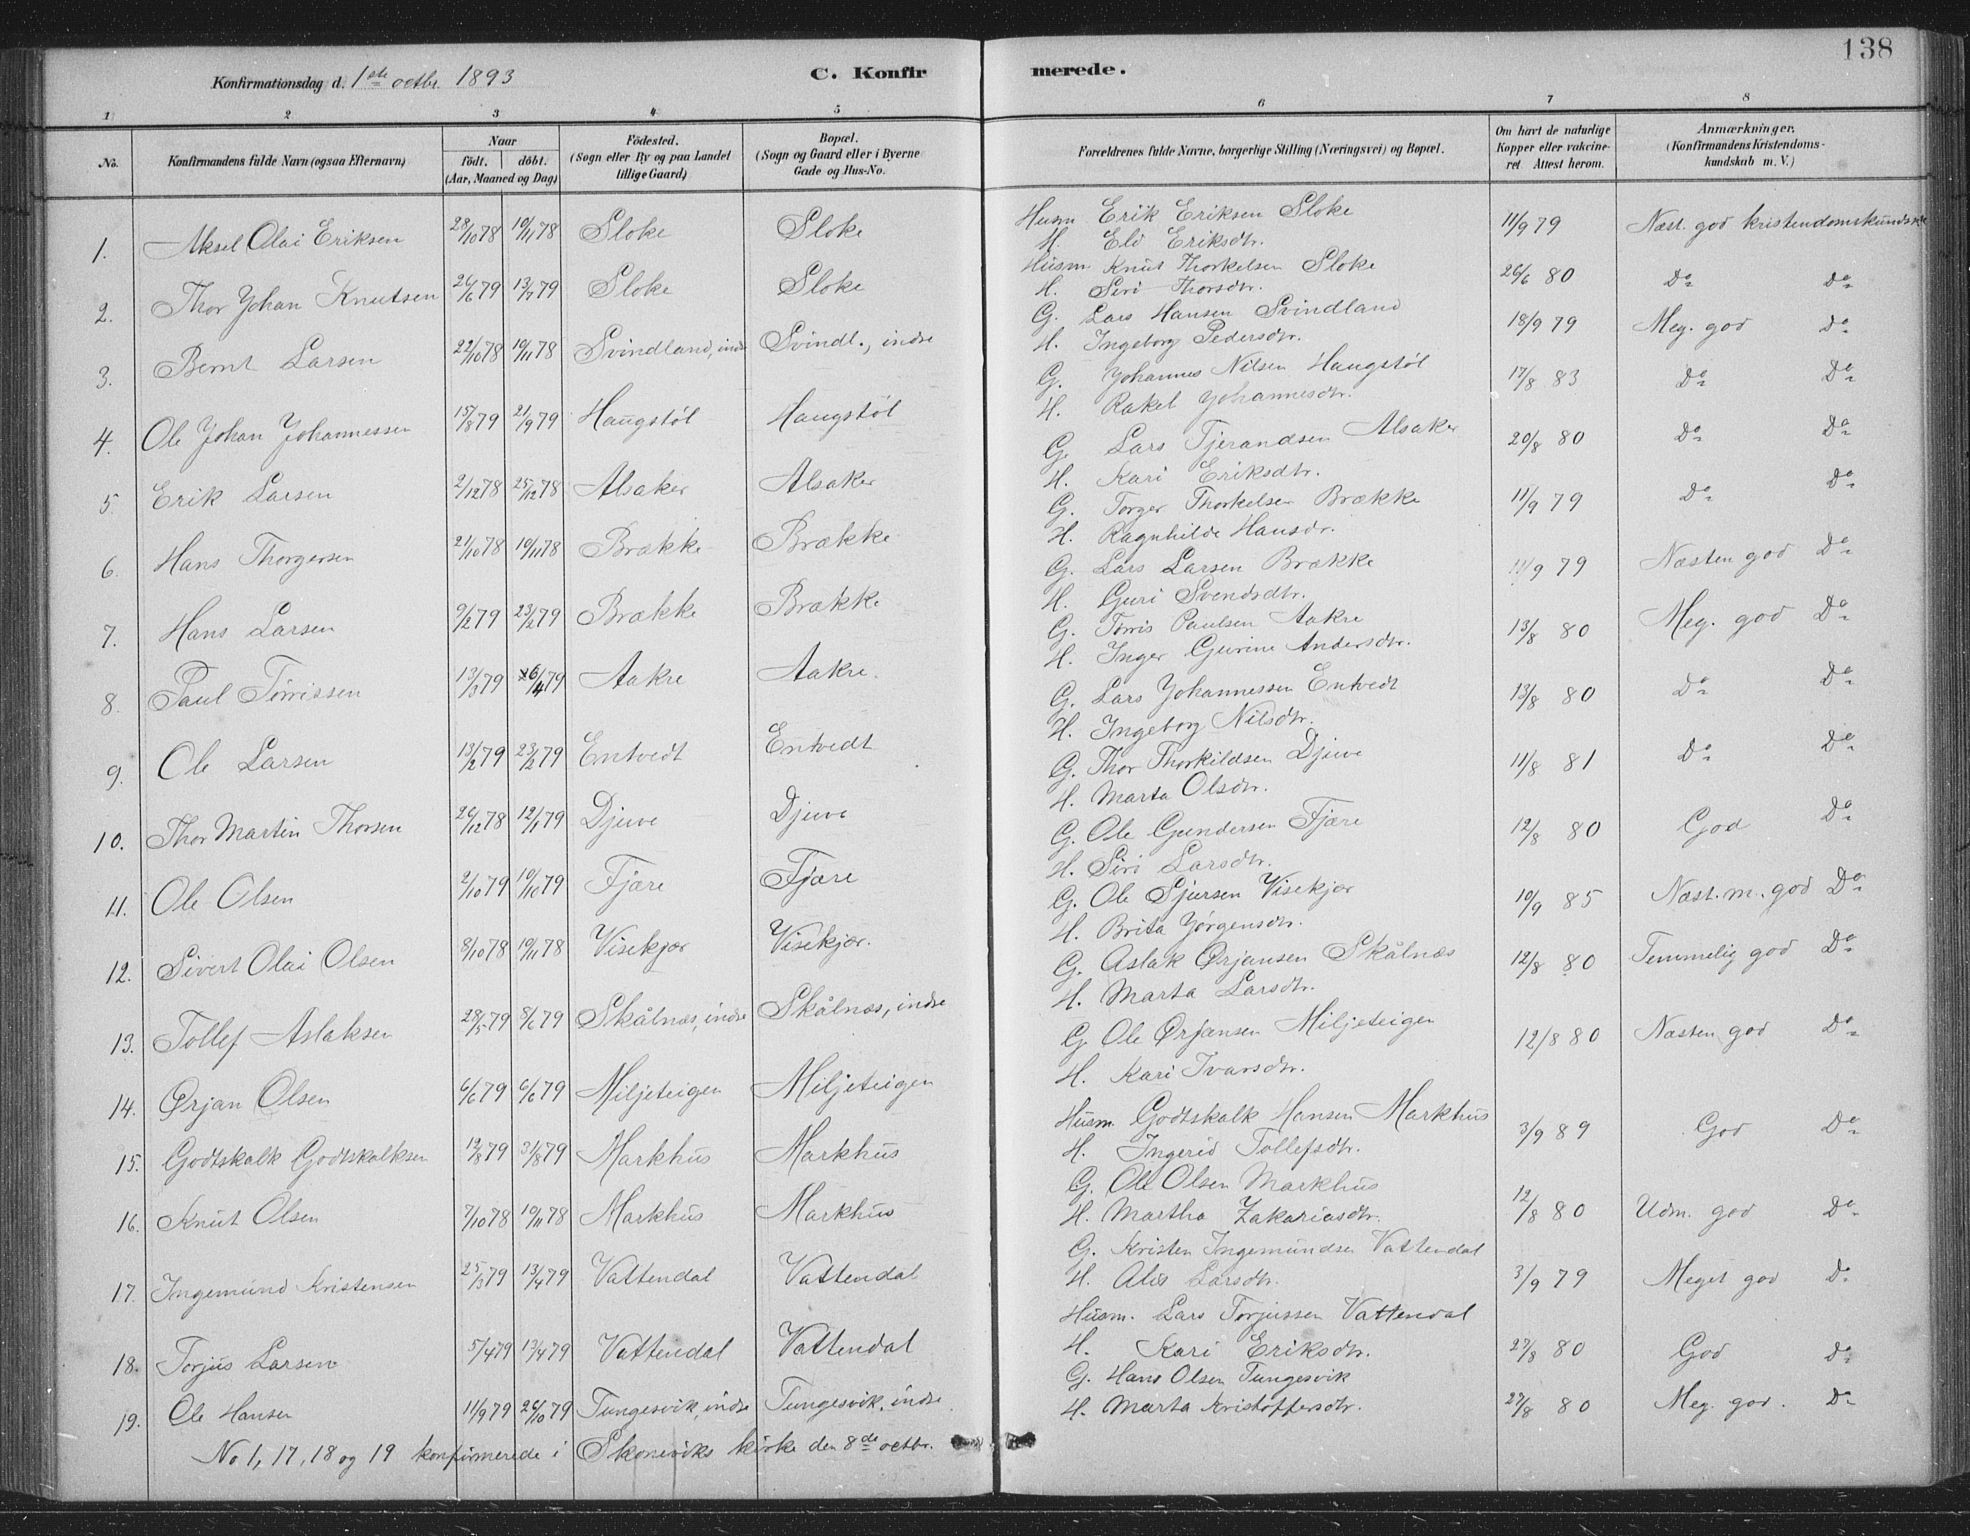 138
Konfirmationsdag d. 1ste octbr. 1893 C. Konfirmerede.
1 2 3 4 5 6 7 8
No. Konfirmandens fulde Navn (ogsaa Efternavn) Naar födt. döbt. (Aar, Maaned og Dag) Födested. (Sogn eller By og paa Landet tillige Gaard) Bopæl. (Sogn og Gaard eller i Byerne Gade og Hus-No. Forældrenes fulde Navne, borgerlige Stilling (Næringsvei) og Bopæl. Om havt de naturlige Kopper eller vakcineret. Attest herom. Anmærkninger. (Konfirmandens Kristendomskundskab m. V.)
1. Aksel Olai Eriksen 28/10 78 10/11 78 Sloke Sloke Husm Erik Eriksen Sloke 11/9 79 Næst. god kristendomskundsk
H. Eli Eriksdtr.
2. Thor Johan Knutsen 26/6 79 13/7 79 Sloke Sloke Husm Knut Thorkelsen Sloke 26/6 80 Do Do
H. Siri Thorsdtr.
3. Bernt Larsen 22/10 78 10/11 78 Svindland, indre Svindl., indre G. Lars Hansen Svindland 18/9 79 Meg. god Do
H. Ingeborg Pedersdtr.
4. Ole Johan Johannessen 15/8 79 21/9 79 Haugstøl Haugstøl G. Johannes Nilsen Haugstøl 17/8 83 Do Do
H. Rakel Johannesdtr.
5. Erik Larsen 2/12 78 25/12 78 Alsaker Alsaker G. Lars Tjerandsen Alsaker 20/8 80 Do Do
H. Kari Eriksdtr.
6. Hans Thorgersen 21/10 78 10/11 78 Brække Brække G. Torger Thorkelsen Brække 11/9 79 Do Do
H. Ragnhilde Hansdr.
7. Hans Larsen 9/2 79 23/2 79 Brække Brække G. Lars Larsen Brække 11/9 79 Næsten god Do
H. Guri Svendsdtr.
8. Paul Tørrissen 13/3 79 6/4 79 Aakre Aakre. G. Tørris Paulsen Aakre 13/8 80 Meg. god Do
H. Inger Gurine Andersdtr.
9. Ole Larsen 13/2 79 23/2 79 Entvedt Entvedt G. Lars Johannessen Entvedt 13/8 80 Do Do
H. Ingeborg Nilsdtr.
10. Thor Martin Thorsen 26/12 78 12/1 79 Djuve Djuve G. Thor Thorkildsen Djuve 11/8 81 Do Do
H. Marta Olsdtr.
11. Ole Olsen 2/10 79 19/10 79 Fjære Fjære G. Ole Gundersen Fjære 12/8 80 God Do
H. Siri Larsdtr.
12. Sivert Olai Olsen 8/10 78 10/11 78 Visekjær Visekjær. G. Ole Sjursen Visekjær 10/9 85 Næst. m. god Do
H. Brita Jørgensdtr.
13. Tollef Aslaksen 28/5 79 8/6 79 Skålnæs, indre Skålnæs, indre G. Aslak Ørjansen Skålnæs 12/8 80 Temmelig god Do
H. Marta Larsdtr.
14. Ørjan Olsen 6/6 79 6/6 79 Miljeteigen Miljeteigen G. Ole Ørjansen Miljeteigen 12/8 80 Næsten god Do
H. Kari Ivarsdtr.
15. Godtskalk Godtskalksen 19/8 79 31/8 79 Markhus Markhus Husm. Godtskalk Hansen Markhus 3/9 89 God Do
H. Ingerid Tollefsdtr.
16. Knut Olsen 7/10 78 10/11 78 Markhus Markhus G. Ole Olsen Markhus 12/8 80 Udm. god Do
H. Martha Zakariasdtr.
17. Ingemund Kristensen 25/3 79 13/4 79 Vattendal Vattendal G. Kristen Ingemundsen Vattendal 3/9 79 Meget god Do
H. Alis Larsdtr.
18. Torjus Larsen 5/4 79 13/4 79 Vattendal Vattendal Husm. Lars Torjussen Vattendal 27/8 80 God Do
H. Kari Eriksdtr.
19. Ole Hansen 11/9 79 26/10 79 Tungesvik, indre Tungesvik, indre G. Hans Olsen Tungesvik 27/8 80 Meg. god. Do
H. Marta Kristoffersdtr.
No 1, 17, 18 og 19 konfirmerede i Skoneviks kirke den 8de octbr.